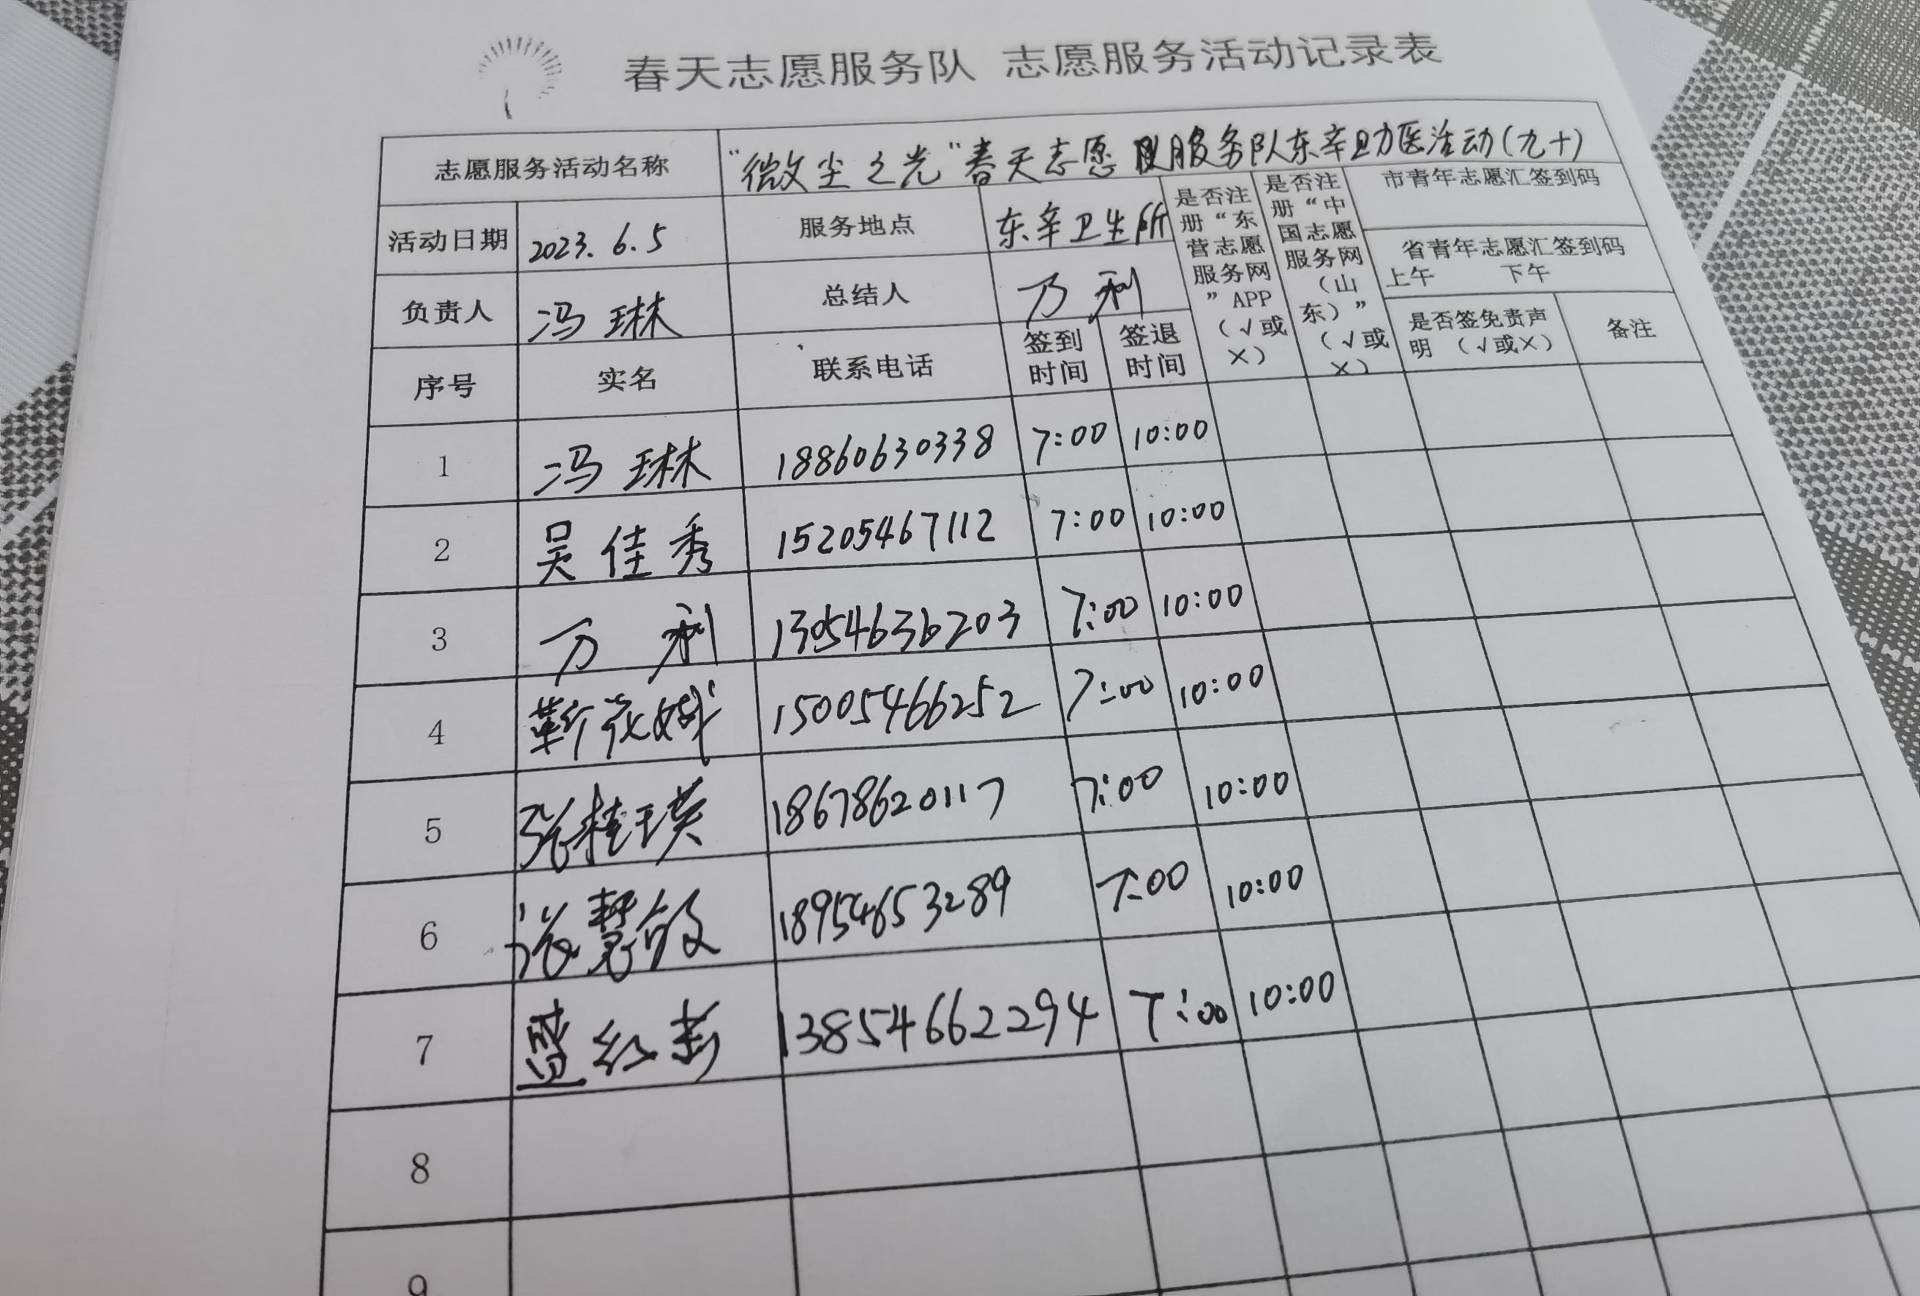 春天志愿服务队 志愿服务活动记录表
志愿服务活动名称 “微尘之光”春天志愿服务队东辛助医活动(九十)
活动日期 2023.6.5 服务地点 东辛卫生所
负责人 冯琳 总结人 万利
是否注册“东营志愿服务网”APP（√或×）
是否注册“中国志愿服务网（山东）”（√或×）
市青年志愿汇签到码
省青年志愿汇签到码
上午 下午
序号 实名 联系电话 签到时间 签退时间 是否签免责声明（√或×） 备注
1 冯琳 18860630338 7:00 10:00
2 吴佳秀 15205467112 7:00 10:00
3 万利 13054636203 7:00 10:00
4 靳 15005466252 7:00 10:00
5 张桂瑛 18678620117 7:00 10:00
6 张慧敏 18954653289 7:00 10:00
7 红彭 13854662294 7:00 10:00
8
9